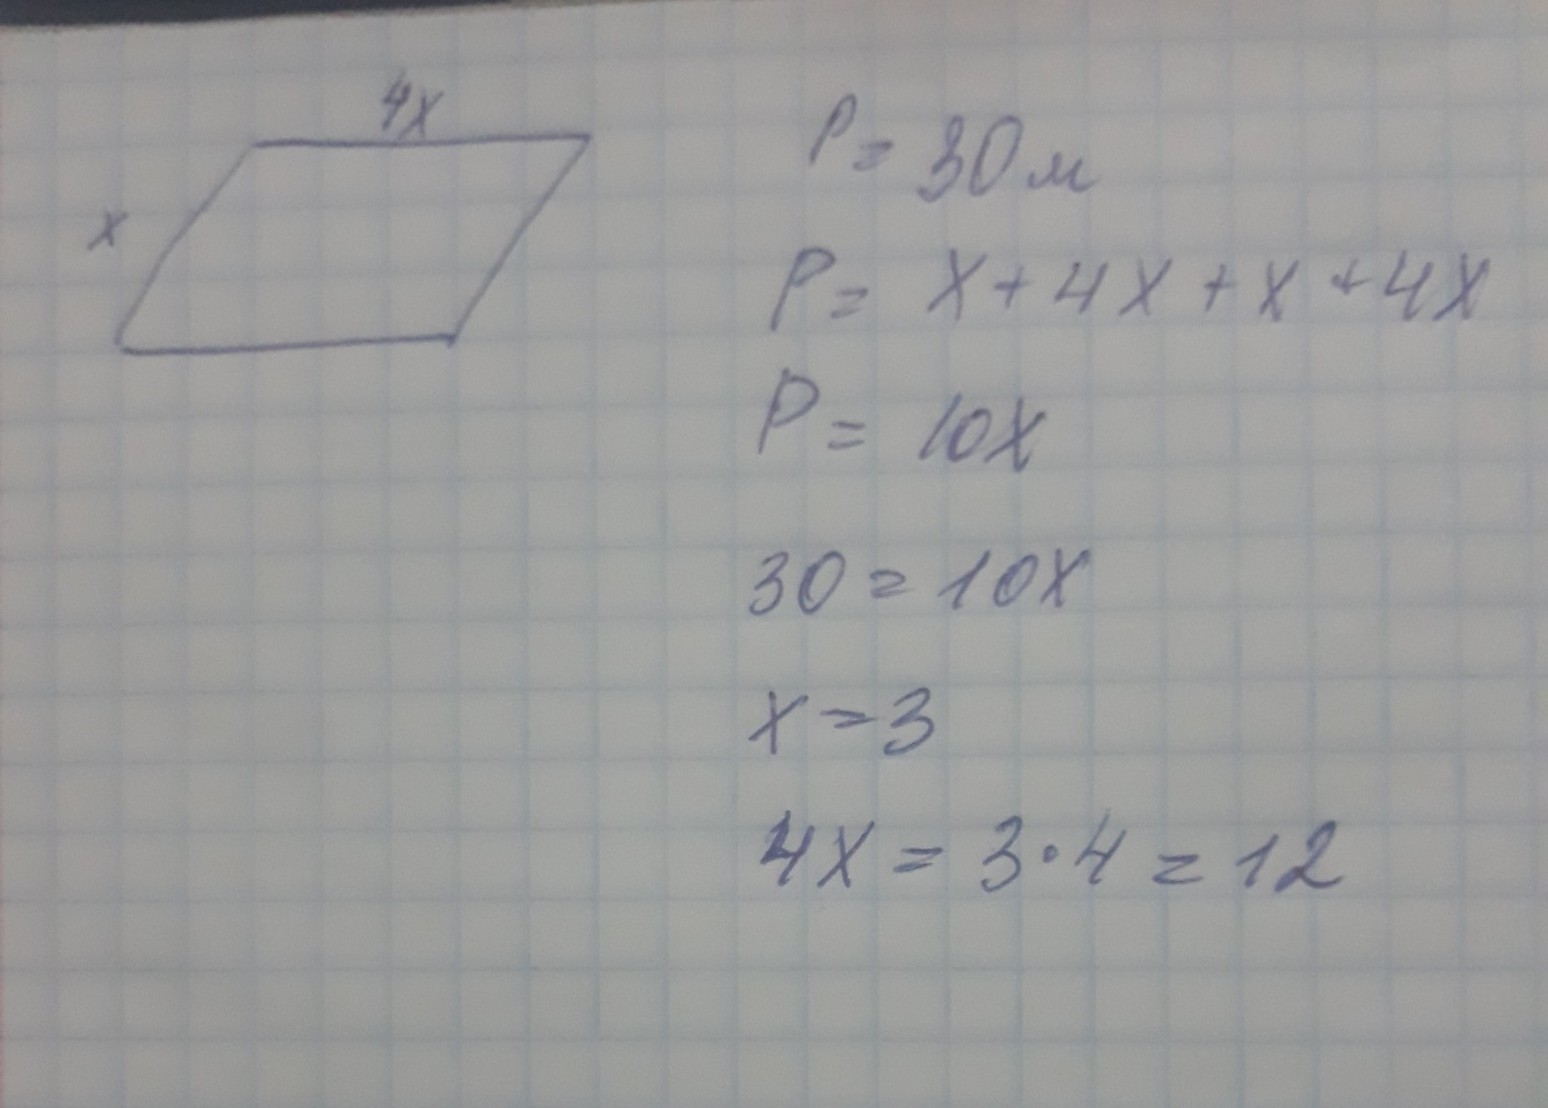 4x
x
P = 30 м
P = x + 4x + x + 4x
P = 10x
30 = 10x
x = 3
4x = 3·4 = 12